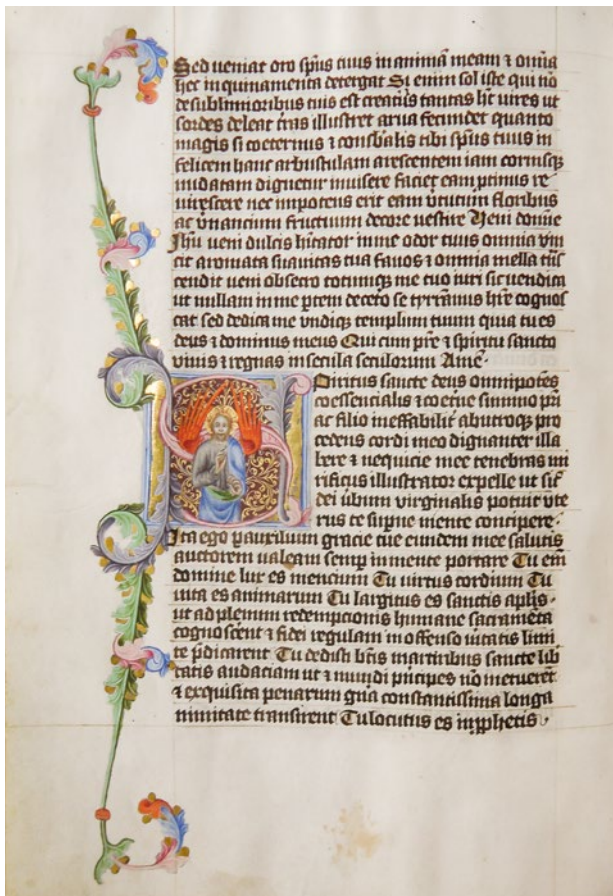 Sed ueniat oro sp̃us tuus in animã meam ⁊ om̃ia
hec inquinamenta detergat Si enim sol iste qui nõ
de sublimioribus tuis est creatus tantas hꝫ uires ut
sordes deleat tr̃as illustret arua fecundet quanto
magis si coeternus ⁊ consb̃alis tibi sp̃us tuus in
felicem hanc arbustulam arescentem iam cornusqꝫ
nudatam dignetur inuisere faciet eam ꝓtinus re
uirescere nec impotens erit eam ũtutum floribus
ac ũnancium fructuum decore uestire Veni domĩe
Ihũ ueni dulcis hĩtator in me odor tuus omnia vin
cit aromata suauitas tua fauos ⁊ omnia mella tñs
cendit ueni obsecro totumqꝫ me tuo iuri sic uendica
ut nullam in me ꝑtem deceto se tyrrãnus hr̃e cognos
cat sed dedica me vndiqꝫ templum tuum quia tu es
deus ⁊ dominus meus Qui cum pr̃e ⁊ spiritu sancto
viuis ⁊ regnas in secula seculorum Amẽ·
Spiritus sancte deus omnipotẽs
coessencialis ⁊ coet̃ne summo pr̃i
ac filio ineffabilit̃ ab utroqꝫ pro
cedens cordi meo dignanter illa
bere ⁊ nequicie mee tenebras mi
rificus illustrator expelle ut sič
dei ũbum virginalis potuit vte
rus te sup̃ne mente concipere·
Ita ego ꝑ auxilium gracie tue eundem mee salutis
auctorem valeam semꝑ in mente portare Tu em̃
domine lux es mencium Tu virtus cordium Tu
uita es animarum Tu largitus es sanctis apl̃is·
ut ad plenum redempcionis humane sacramẽta
cognoscẽnt ⁊ fidei regulam inoffenso ũitatis limi
te p̃dicarent Tu dedisti bt̃is martiribus sancte lib̃
tatis audaciam ut ⁊ mundi p̃ncipes nõ metuerẽt
⁊ exquisita penarum gñа constantissima longa
nimitate transirent Tu locutus es in ꝓphetis·